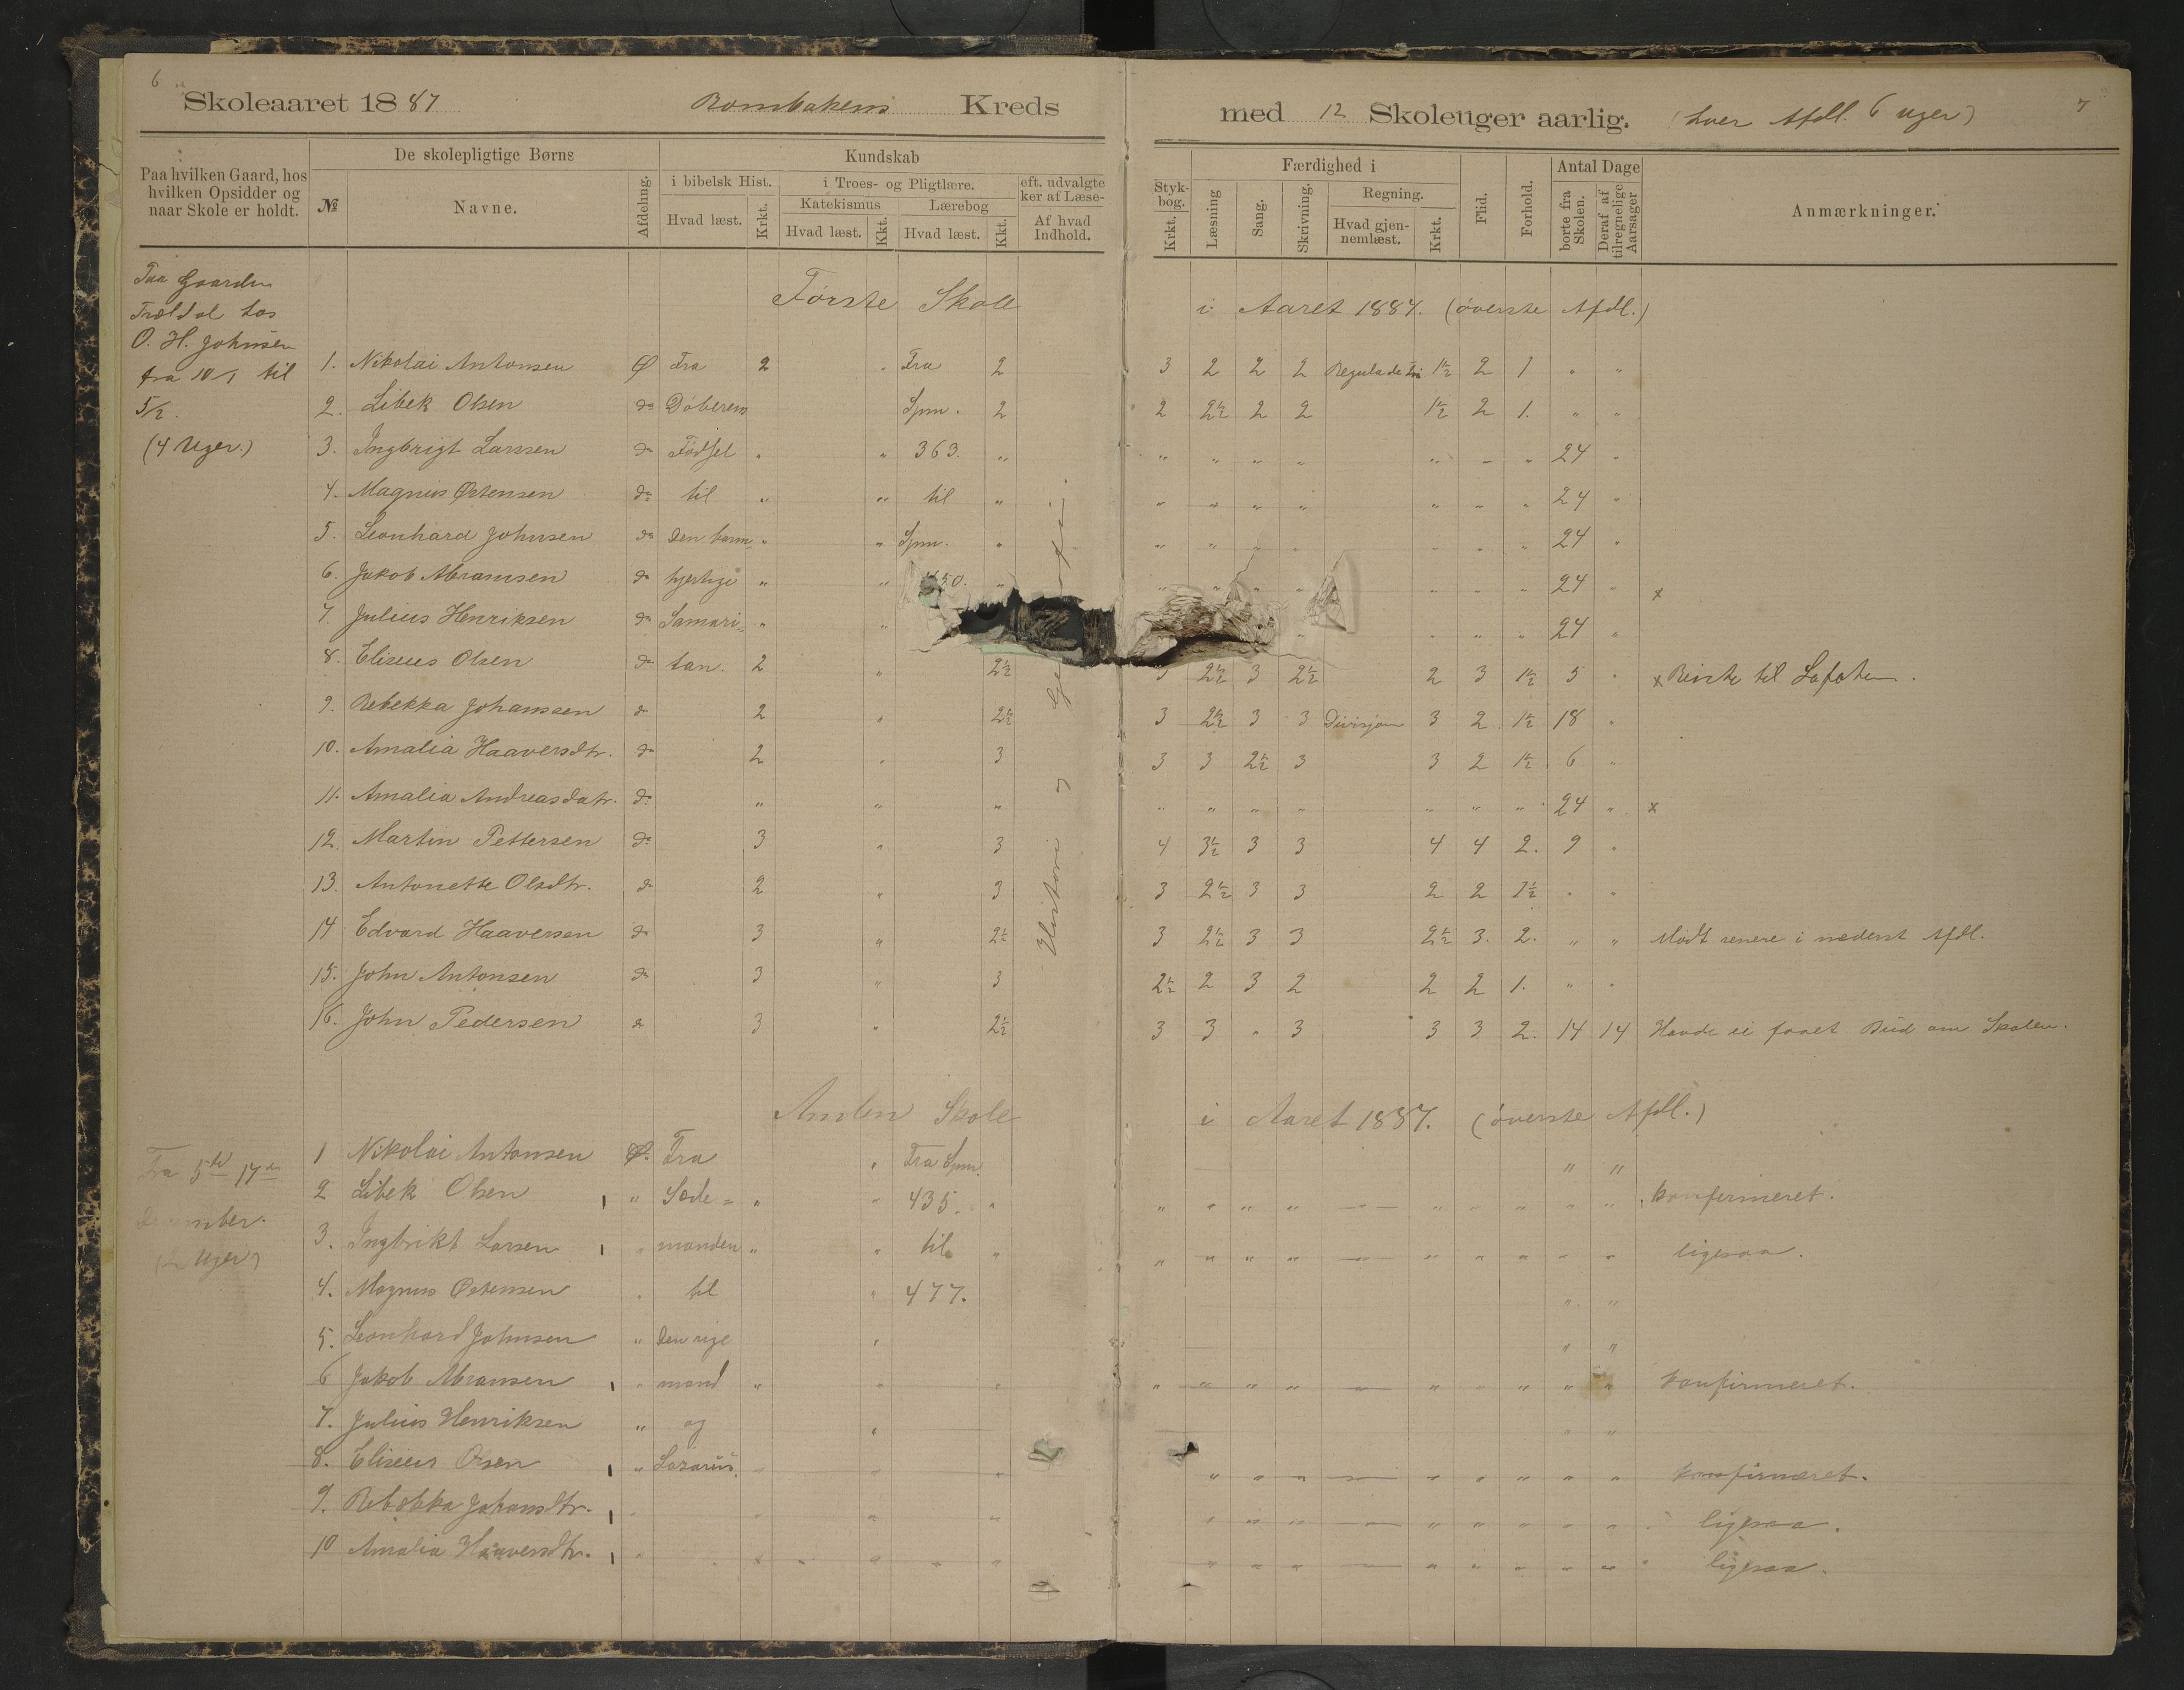 6
Skoleaaret 1887 Rombakens Kreds
med 12 Skoleuger aarlig. (hver Afdl. 6 Uger)
7
Paa hvilken Gaard, hos hvilken Opsidder og naar Skole er holdt.
De skolepligtige Børns
№
Navne.
Afdeling.
Kundskab
i bibelsk Hist.
Hvad læst.
Krkt.
i Troes- og Pligtlære.
Katekismus
Hvad læst.
Kkt.
Lærebog
Hvad læst.
Kkt.
eft. udvalgte
ker af Læse-
Af hvad Indhold.
Styk-
bog.
Krkt.
Færdighed i
Læsning
Sang.
Skrivning.
Regning.
Hvad gjen-
nemlæst.
Krkt.
Flid.
Forhold.
Antal Dage
borte fra Skolen.
Deraf af tilregnelige Aarsager
Anmærkninger.
Paa Gaarden
Trældal hos
O. H. Johnsen
fra 10/1 til
5/2.
(4 Uger.)
Første Skole i Aaret 1887. (øverste Afdl.)
1. Nikolai Antonsen Ø Fra 2 " Fra 2 3 2 2 2 Regula de Tri 1½ 2 1 " "
2. Libek Olsen do Døberens Spm. 2 2 2½ 2 2 1½ 2 1. " "
3. Ingbrigt Larssen do Fødsel " " 363. " " " " " " " " 24 "
4. Magnus Østensen do til " " til " " " " " " " " 24 "
5. Leonhard Johnsen do den barm " " Spm. " " " " " " " " 24 "
6. Jakob Abramsen do hjertige " " 50. " " " " " " " 24 " x
7. Julius Henriksen do Samari= " " " " " " 24 "
8. Eliseus Olsen do tan. 2 " 2½ 3 2½ 3 2½ 2 3 1½ 5 " x Reiste til Lofoten.
9. Rebekka Johanssen do 2 " 2½ 3 2½ 3 3 Divisjon 3 2 1½ 18 "
10. Amalia Haaversdtr. do 2 " 3 3 3 2½ 3 3 2 1½ 6 "
11. Amalia Andreasdatr. do " " " " " " " " " " 24 " x
12. Martin Pettersen do 3 " 3 4 3½ 3 3 4 4 2. 9 "
13. Antonette Olsdtr. do 2 " 3 3 2½ 3 3 2 2 1½ " "
14 Edvard Haaversen do 3 " 2½ 3 2½ 3 3 2½ 3. 2. " " Mødt senere i nederst Afdl.
15. John Antonsen do 3 " 3 2½ 2 3 2 2 2 1. " "
16. John Pedersen do 3 " 2½ 3 3 " 3 3 3 2. 14 14 Havde ei faaet Bud om Skolen.
Historie og
Anden Skole i Aaret 1887. (øverste Afdl.)
Fra 5te 17de
December.
(2 Uger)
1 Nikolai Antonsen Ø. Fra " Fra Spm. " "
2 Libek Olsen " Sæde= " " 435. " " " " " — " " " " " konfirmeret.
3. Ingbrikt Larsen " manden " " til " " " " " — " " " " " ligesaa.
4. Magnus Østensen " til " 477. " "
5. Leonhard Johnsen " Den rige " " "
6 Jakob Abramsen " mand " " " " " " " — " " " " " konfirmeret.
7. Julius Henriksen " og " " "
8. Eliseus Olsen " Lazarus. " " " " " " — " " " " " konfirmeret.
9. Rebekka Johansdtr. " " " " " " " — " " " " " ligesaa.
10 Amalia Haaversdtr. " " " " " " " — " " " " " ligesaa.